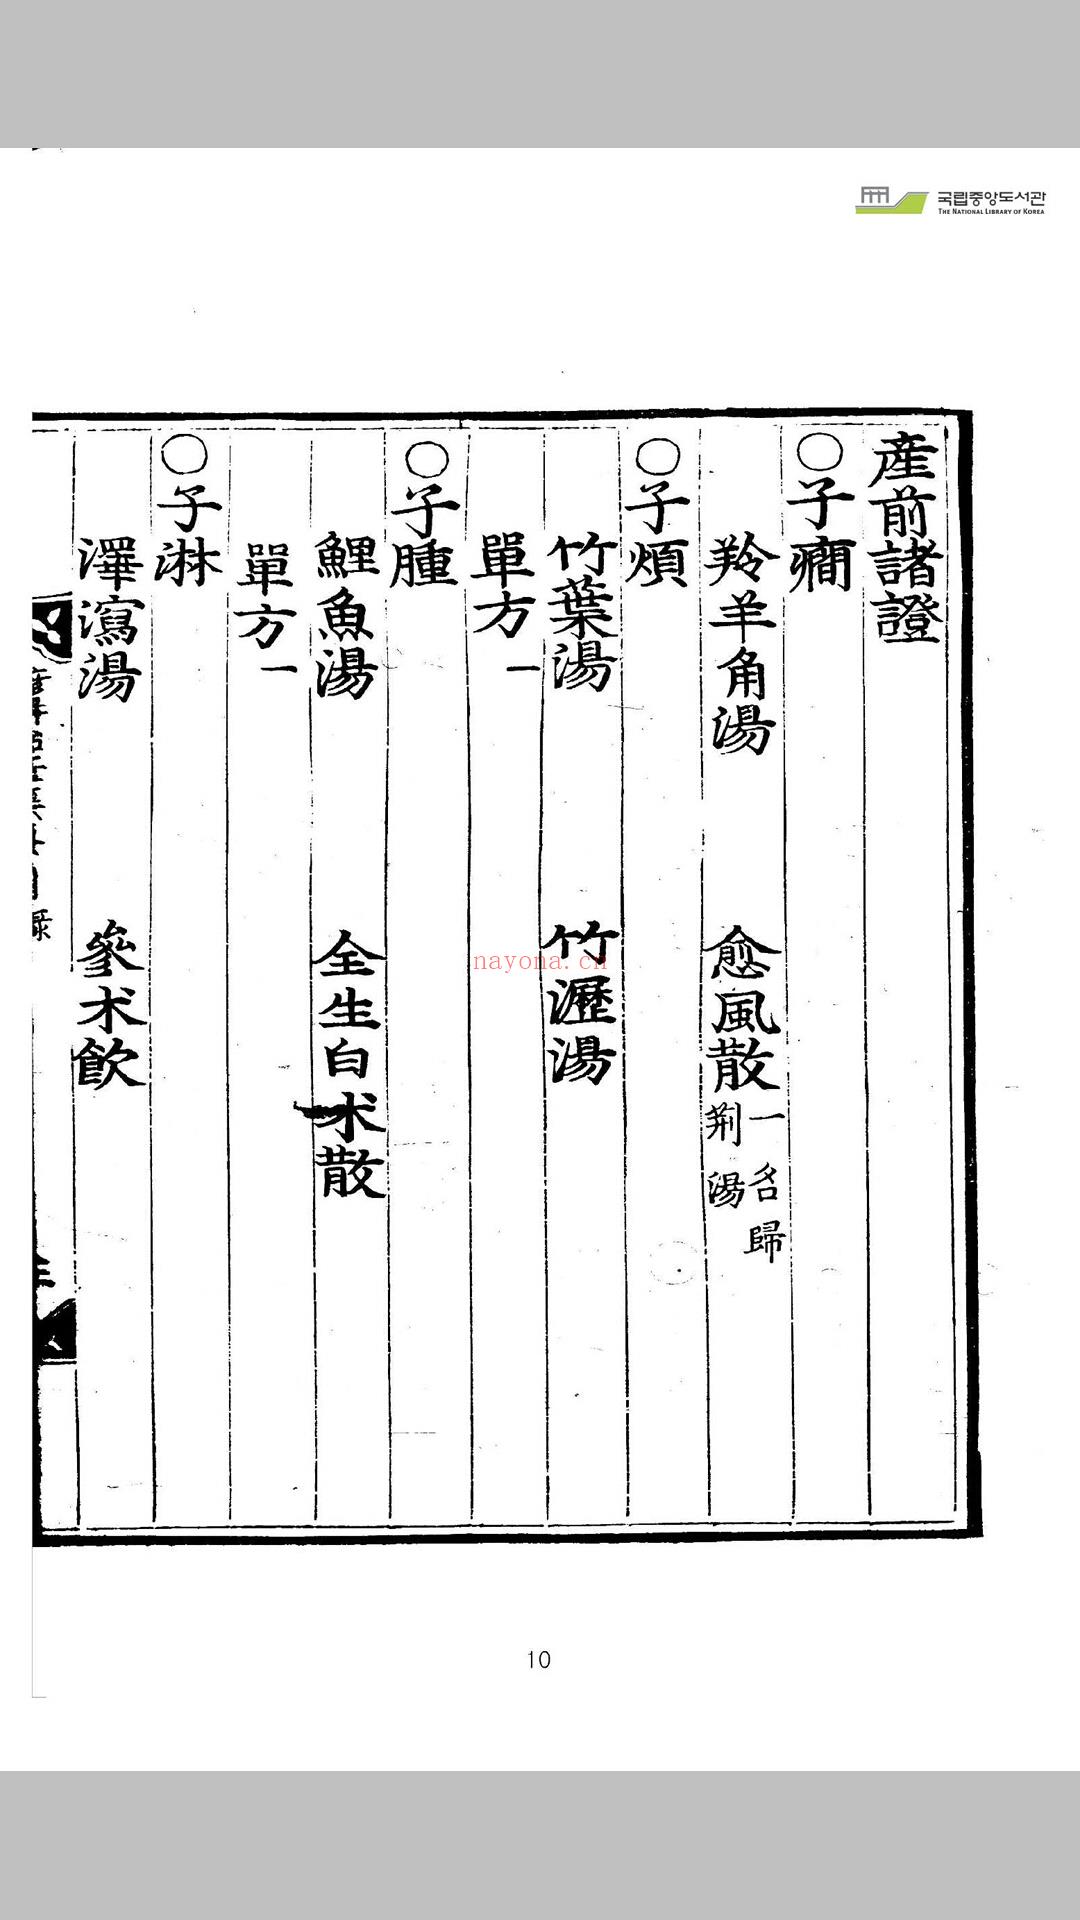 국립중앙도서관
THE NATIONAL LIBRARY OF KOREA
産前諸證
○子癇
羚羊角湯 愈風散 一名歸荆湯
○子煩
竹葉湯 竹瀝湯
單方一
○子腫
鯉魚湯 全生白朮散
單方一
○子淋
澤瀉湯 參朮飮
錄
nayona.cn
10